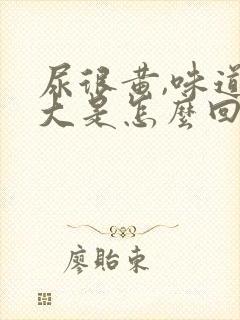 尿很黄,味道
大是怎麼回
廖貽東